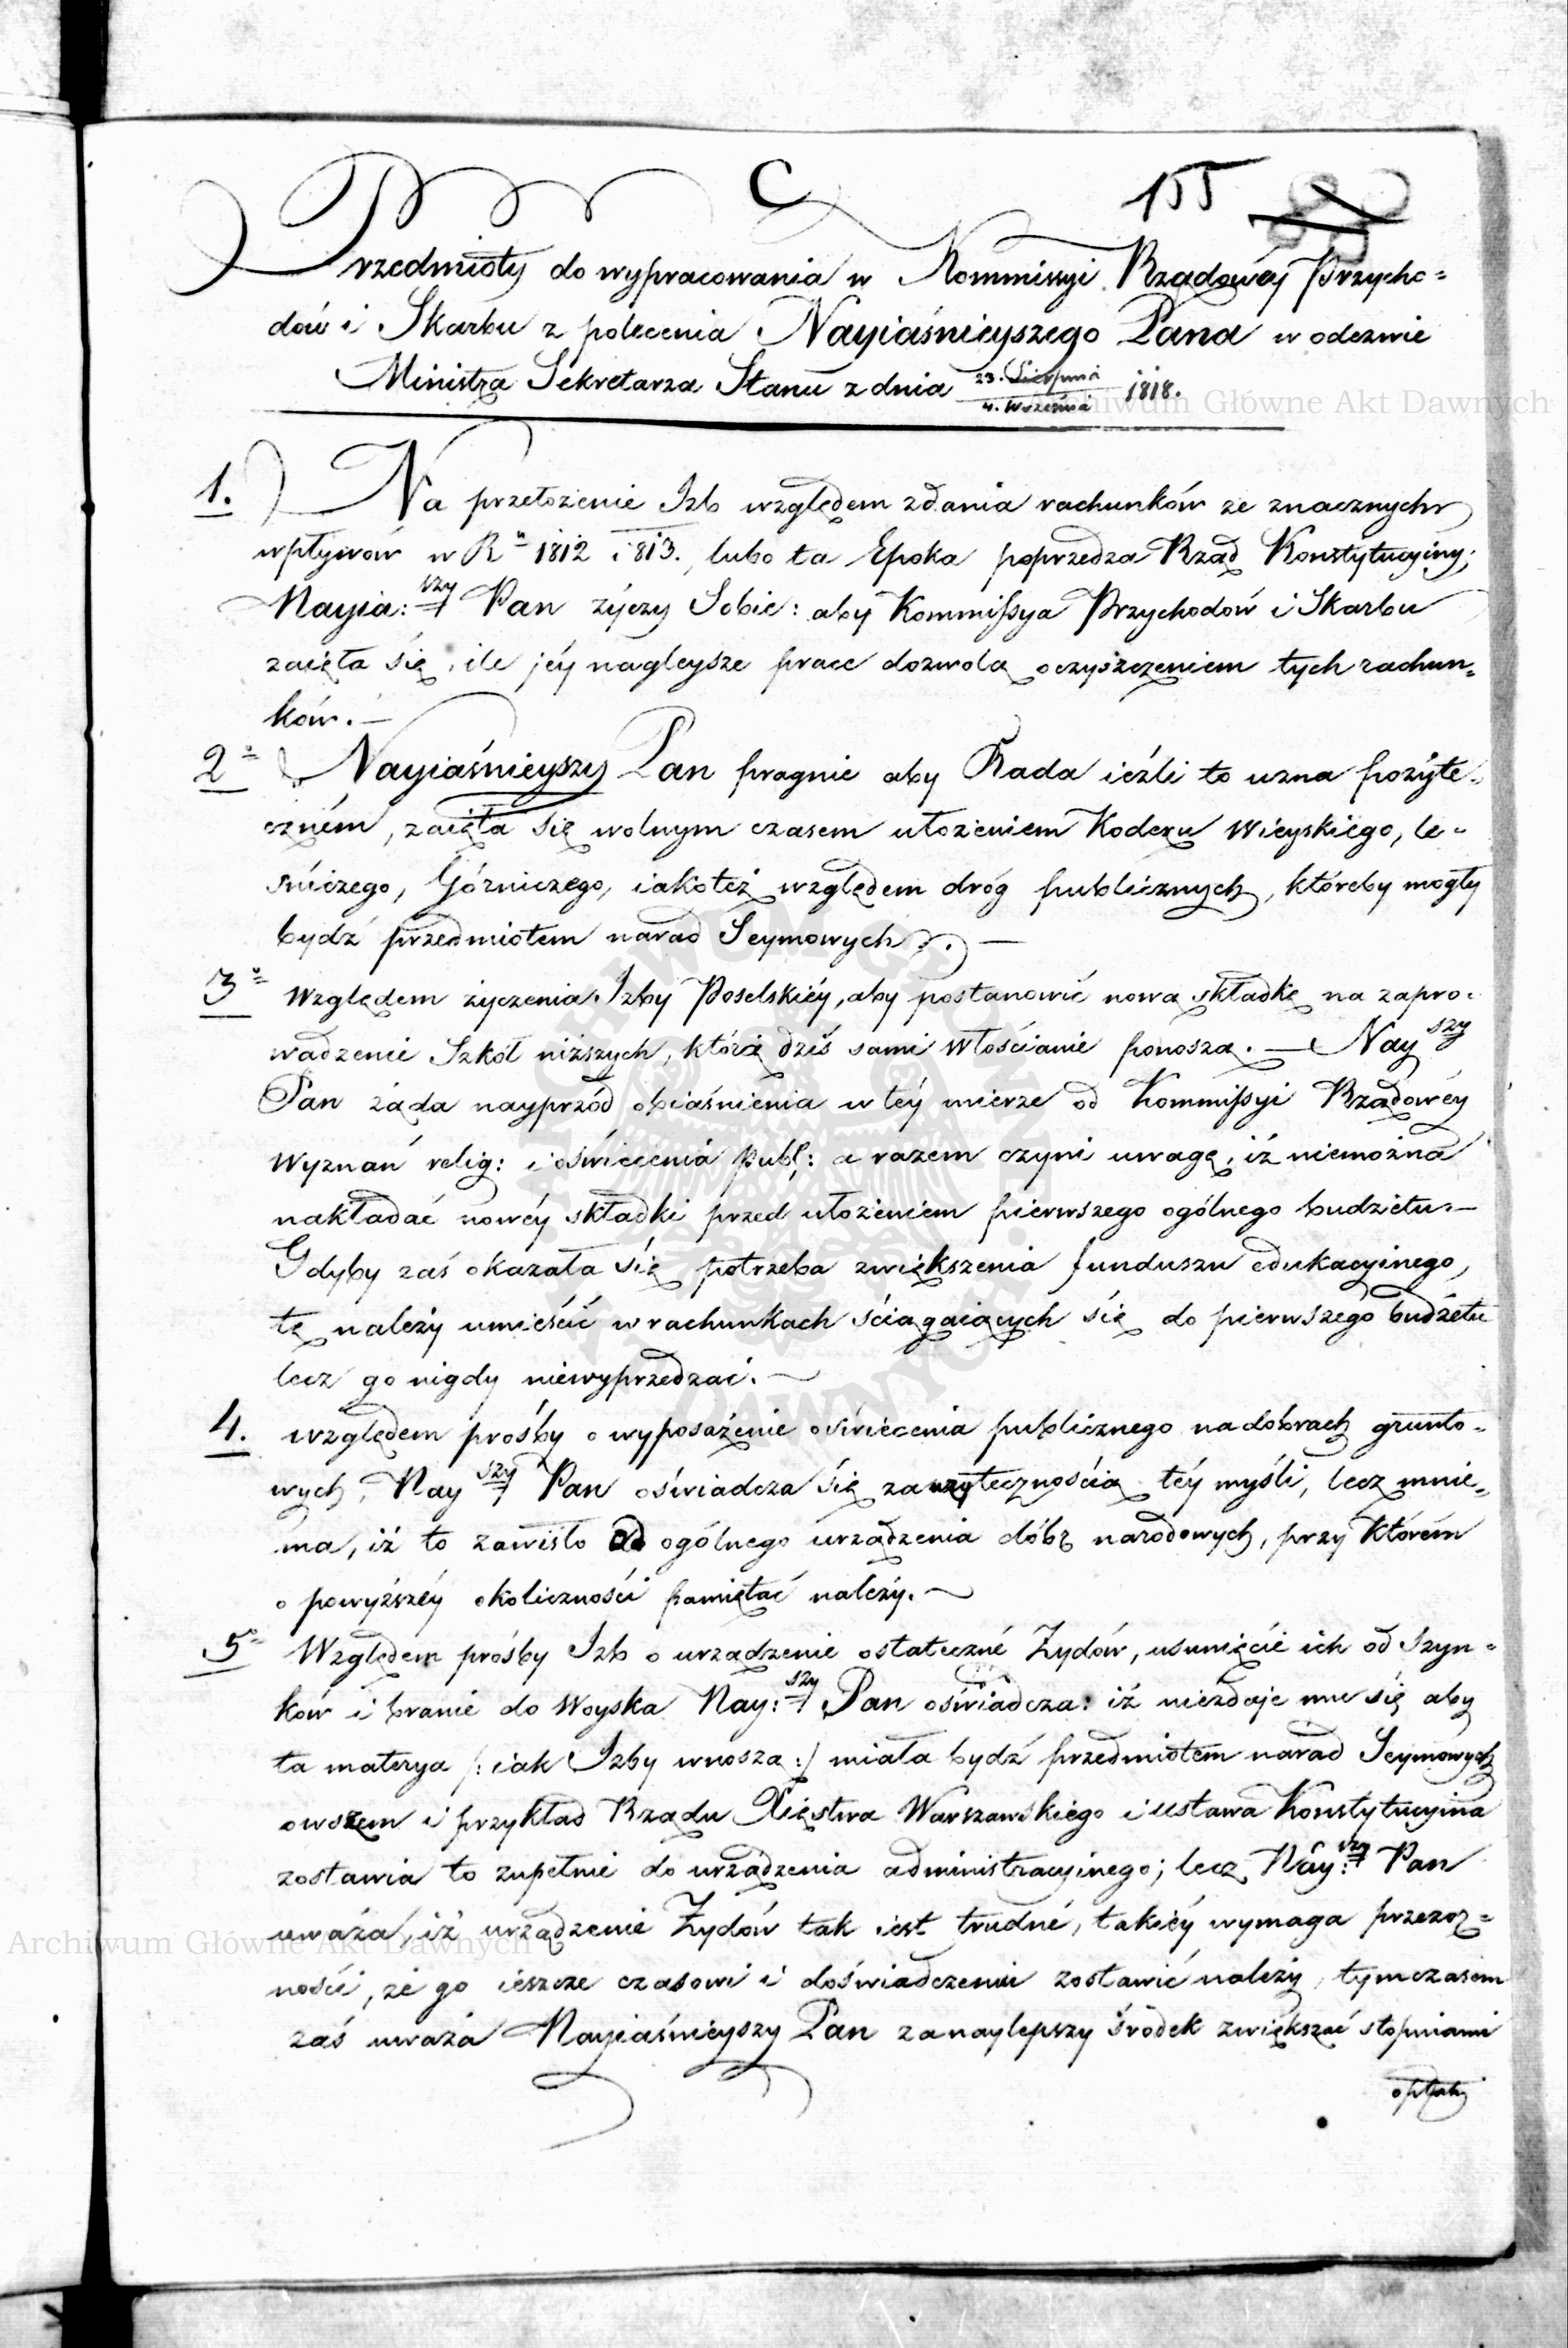 C
155
Przedmioty do wypracowania w Kommissyi Rządowéy Przycho=
dów i Skarbu z polecenia Nayiaśnieyszego Pana w odezwie
Ministra Sekretarza Stanu z dnia 23. Sierpnia / 4. Września 1818.
Archiwum Główne Akt Dawnych
1. Na przełożenie Izb względem zdania rachunków ze znacznych
wpływów w Ru 1812 i 813., lubo ta Epoka poprzedza Rząd Konstytucyiny;
Nayia: szy Pan życzy Sobie: aby Kommissya Przychodów i Skarbu
zaięła się, ile jéy nagleysze prace dozwolą oczyszczeniem tych rachun=
ków. —
2o Nayiaśnieyszy Pan pragnie aby Rada ieźli to uzna pożyte=
czném, zaięła się wolnym czasem ułożeniem Kodexu Wieyskiego, le=
śniczego, Górniczego, iakoteż względem dróg publicznych, któreby mogły
bydź przedmiotem narad Seymowych. —
3o Względem życzenia Izby Poselskiéy, aby postanowić nową składkę na zapro=
wadzenie Szkół niższych, którą dziś sami Włościanie ponoszą. — Nay szy
Pan żąda nayprzód obiaśnienia w téy mierze od Kommissyi Rządowéy
Wyznań relig: i oświecenia publ: a razem czyni uwagę, iż niemożna
nakładać nowéy składki przed ułożeniem pierwszego ogólnego budżetu. —
Gdyby zaś okazała się potrzeba zwiększenia funduszu edukacyinego,
tę należy umieścić w rachunkach ściągaiących się do pierwszego budżetu
lecz go nigdy niewyprzedzać. —
4. względem prośby o wyposażenie oświecenia publicznego na dobrach grunto=
wych, Nay szy Pan oświadcza się za użytecznością téy myśli, lecz mnie=
ma, iż to zawisło od ogólnego urządzenia dóbr narodowych, przy którém
o powyższéy okoliczności pamiętać należy. —
5o Względem prośby Izb o urządzenie ostateczné Żydów, usunięcie ich od Szyn=
ków i branie do Woyska Nay: szy Pan oświadcza: iż niezdaje mu się aby
ta materya /: iak Izby wnoszą :/ miała bydź przedmiotem narad Seymowych
owszem i przykład Rządu Xięstwa Warszawskiego i ustawa Konstytucyina
zostawia to zupełnie do urządzenia administracyinego; lecz Nay: szy Pan
uważa, iż urządzenie Żydów tak iest trudné, takiéy wymaga przezor=
Archiwum Główne Akt Dawnych
ności, że go ieszcze czasowi i doświadczeniu zostawić należy, tymczasem
zaś uważa Nayiaśnieyszy Pan za naylepszy środek zwiększać stopniami
opłaty